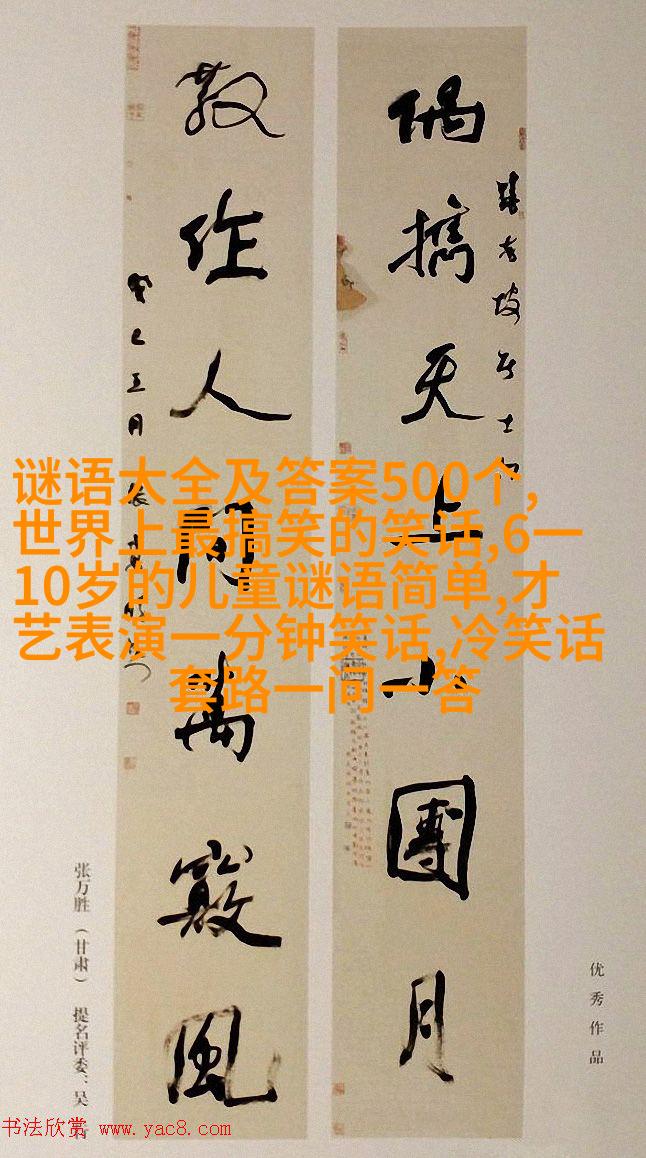 偶攜天上小團月
散作人間萬竅風
癸巳五月
谜语大全及答案500个,
世界上最搞笑的笑话,6一
10岁的儿童谜语简单,才
艺表演一分钟笑话,冷笑话
套路一问一答
优秀作品
张万胜（甘肃） 提名评委：吴
书法欣赏 www.yac8.com